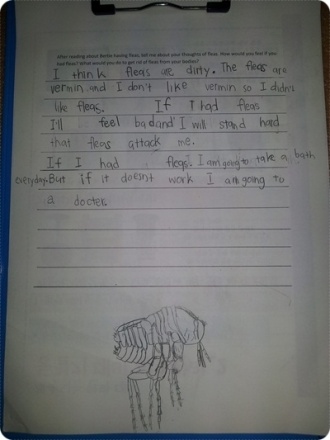 After reading about Bertie having fleas, tell me about your thoughts of fleas. How would you feel if you
had fleas? What would you do to get rid of fleas from your bodies?
I think fleas are dirty. The fleas are
vermin and I don't like vermin so I didn't
like fleas. If I had fleas
I'll feel bad and I will stand hard
that fleas attack me.
If I had fleas. I am going to take a bath
everyday. But if it doesn't work I am going to
a docter.